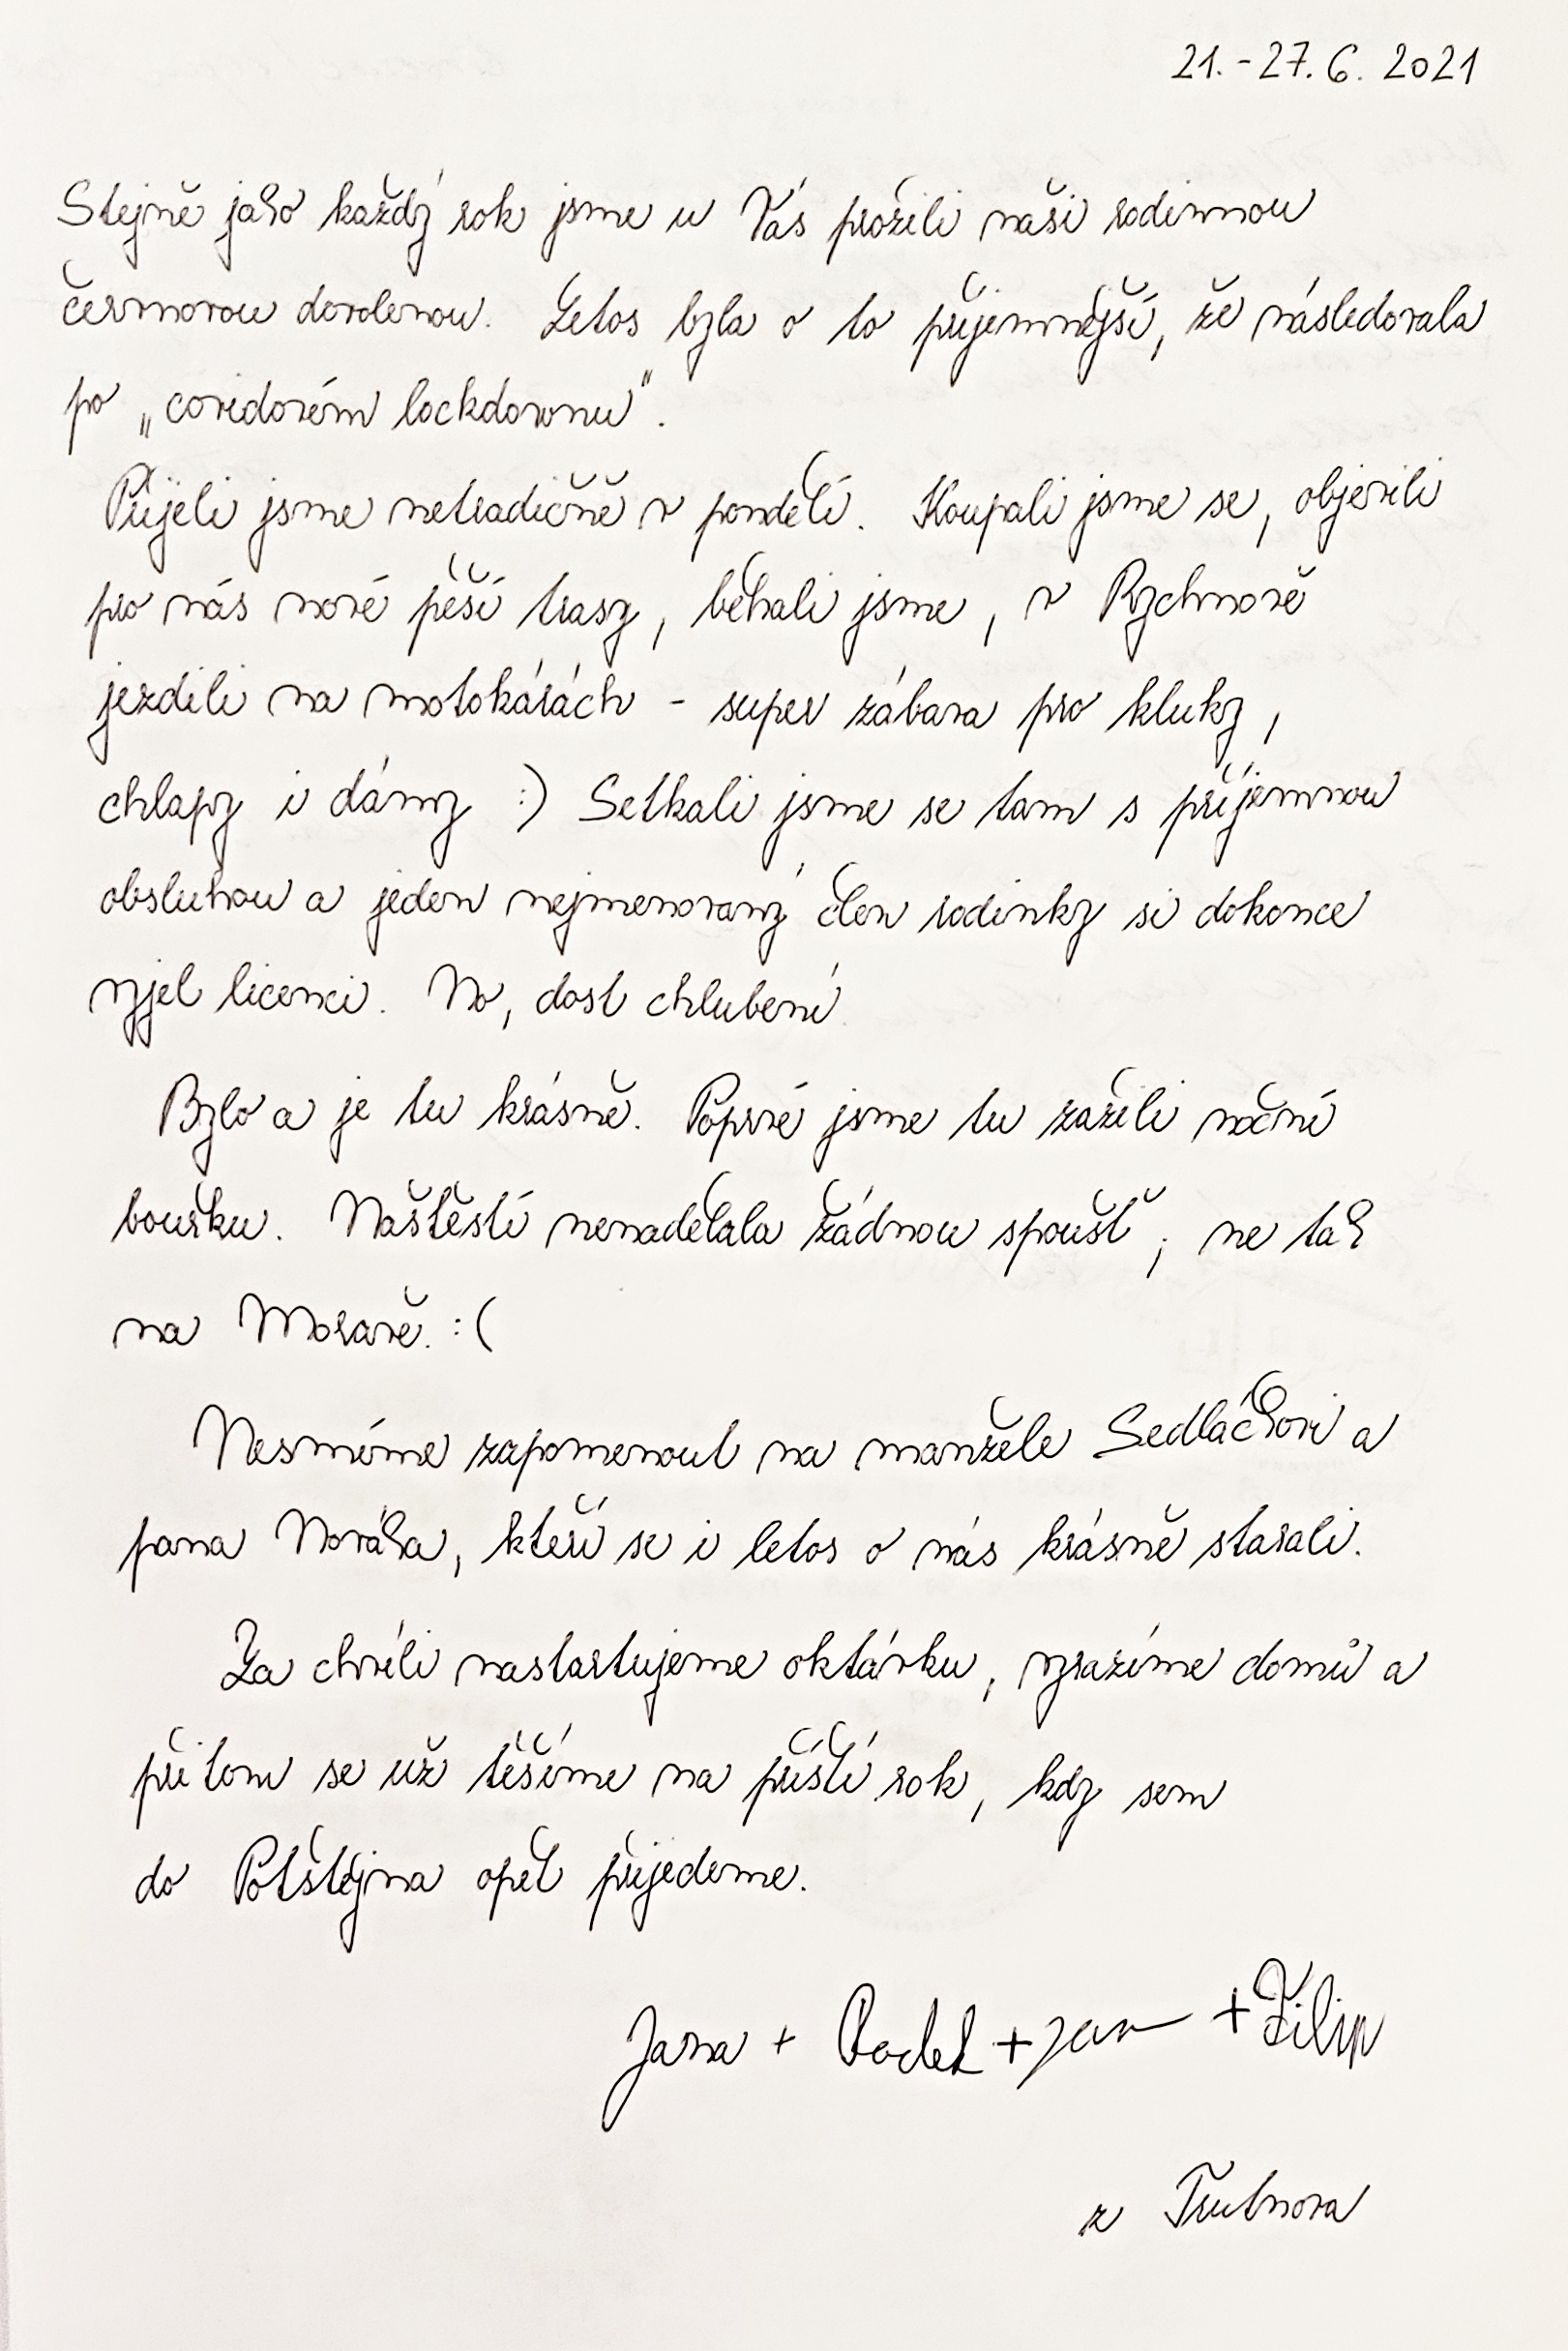 21.-27.6. 2021
Stejně jako každý rok jsme u Vás prožili naši rodinnou
červnovou dovolenou. Letos byla o to příjemnější, že následovala
po „covidovém lockdownu“.
Přijeli jsme netradičně v pondělí. Koupali jsme se, objevili
pro nás nové pěší trasy, běhali jsme, v Rychnově
jezdili na motokárách - super zábava pro kluky,
chlapy i dámy :) Setkali jsme se tam s příjemnou
obsluhou a jeden nejmenovaný člen rodinky si dokonce
vyjel licenci. No, dost chlubení.
Bylo a je tu krásně. Poprvé jsme tu zažili noční
bouřku. Naštěstí nenadělala žádnou spoušť, ne tak
na Moravě. :(
Nesmíme zapomenout na manžele Sedláčkovi a
pana Nováka, kteří se i letos o nás krásně starali.
Za chvíli nastartujeme oktávku, vyrazíme domů a
při tom se už těšíme na příští rok, kdy sem
do Potštejna opět přijedeme.
Jana + Radek + Jan + Filip
z Trutnova